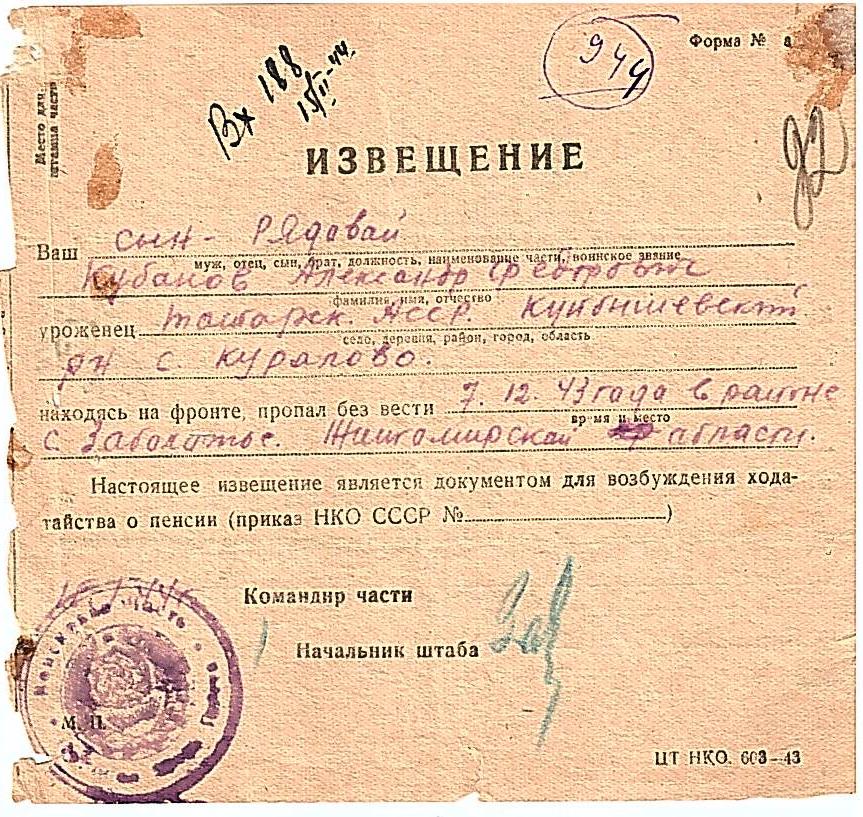 Вх 188
15/II-44
944
Форма №
Место для
штампа части
ИЗВЕЩЕНИЕ
Ваш сын - Рядавай
муж, отец, сын, брат, должность, наименование части, воинское звание
Кубанов Александр Федорович
фамилия, имя, отчество
уроженец Татарск. АССР. Куйбышевский
село, деревня, район, город, область
рн с. Куралово.
находясь на фронте, пропал без вести 7. 12. 43 года в районе
время и место
с Заболотье. Житомирской области.
Настоящее извещение является документом для возбуждения хода-
тайства о пенсии (приказ НКО СССР №)
Командир части
Начальник штаба
М. П.
ЦТ НКО. 603—43